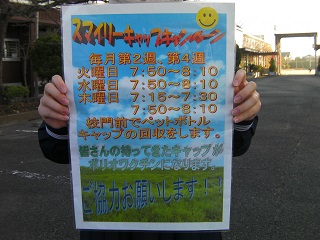 スマイリーキャップキャンペーン
毎月第2週、第4週
火曜日 7:50〜8:10
水曜日 7:50〜8:10
木曜日 7:15〜7:30
7:50〜8:10
校門前でペットボトル
キャップの回収をします。
皆さんの持ってきたキャップが
ポリオワクチンになります。
ご協力お願いします!!